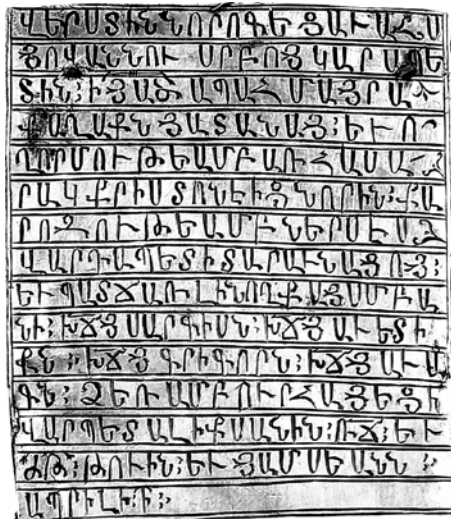 ՎԵՐՍՏԻՆ ՆՈՐՈԳԵՑԱՒ
ՅՈՎԱՆՆՈՒ ՍՐԲՈՑ ԿԱՐԱՊԵ
ՏԻՆ։ Ի ՅԱԾԱՊԱՀ ՄԱՅՐԱ
ՔԱՂԱՔՆ ՅԱՏԱՆԱՅ։ ԵՒ Ո
ՂՈՐՄՈՒԹԵԱՄԲ ԱՌՀԱՍԱ
ՐԱԿ ՔՐԻՍՏՈՆԵԻՑ ՆՈՐԻՆ։ ՔԱ
ՐՈԶՈՒԹԵԱՄԲ ՆԵՐՍԷՍ
ՎԱՐԴԱՊԵՏԻ ՏԱՐԱՒՆԱՑՈՅ։
ԵՒ ՊԱՏՃԱՌ ԼԻՆՈՂՔ ԱՅՍՄ ԲԱ
ՆԻ։ ԽՃՅ ՍԱՐԳԻՍՆ։ ԽՃՅ ԱՒԵՏԻ
ՔՆ։ ԽՃՅ ԳՐԻԳՈՐՆ։ ԽՃՅ ԱՒԱ
ԳՆ։ ՁԵՌԱՄԲ ՈՒՐՀԱՅԵՑԻ
ՎԱՐՊԵՏ ԱԼԻՔՍԱՆԻՆ։ ՌՃ։ ԵՒ
ԹՈՒԻՆ։ ԵՒ ՅԱՄՍԵԱՆՆ ։
ԱՊՐԻԼԻ։ Ի։